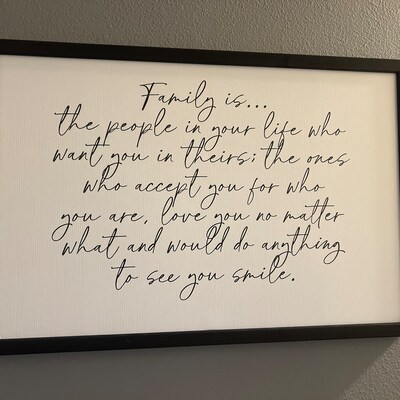 Family is...
the people in your life who
want you in theirs; the ones
who accept you for who
you are, love you no matter
what and would do anything
to see you smile.